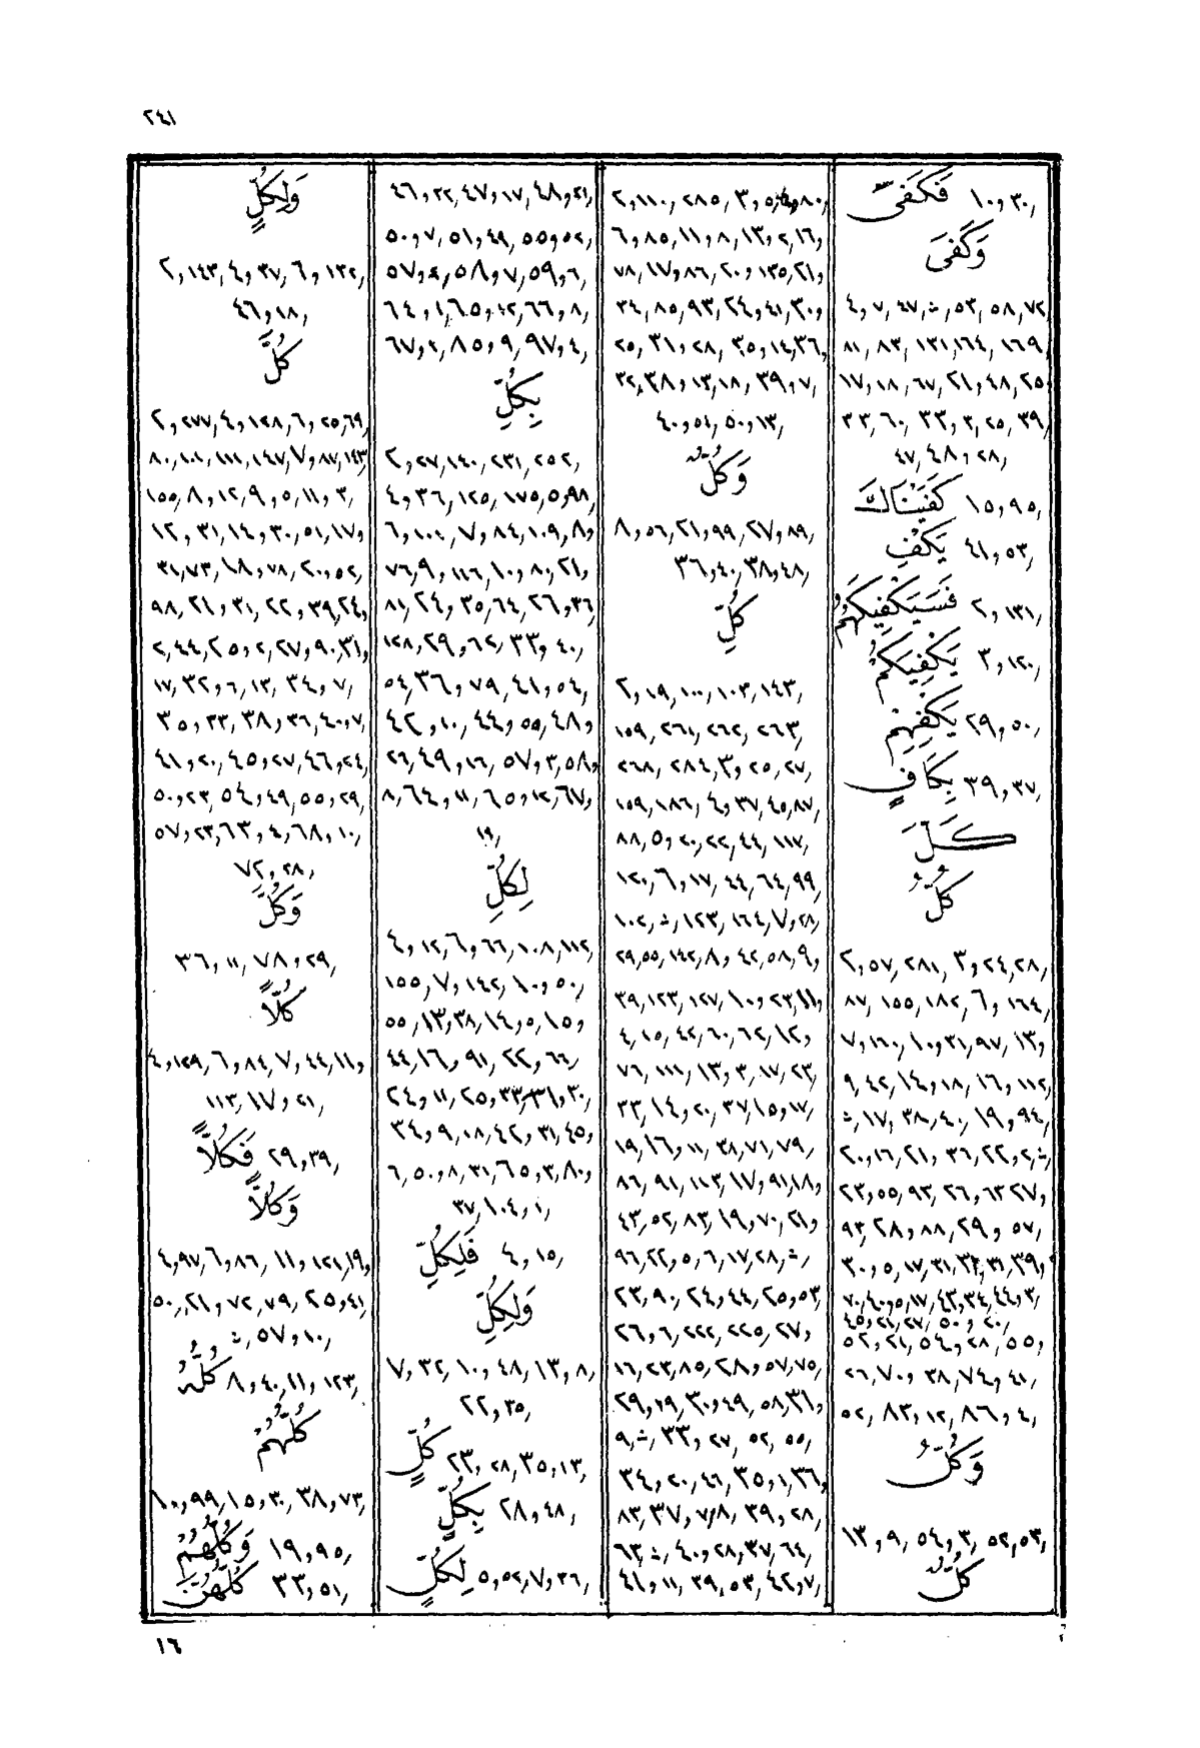 ٢٤١
فَكَفَىٰ ١٠,٣٠,
وَكَفَىٰ
٤,٧, ٤٧, ث, ٥٣, ٥٨, ٧٢
٨١, ٨٣, ١٣١, ١٦٤, ١٦٩,
١٧,١٨, ٦٧, ٢١, ٤٨, ٢٥,
٣٣,٦٠, ٣٣, ٣, ٢٥, ٣٩,
٤٧, ٤٨, ٢٨,
كَفَيْنَاكَ ١٥,٩٥,
يَكْفِ ٤١,٥٣,
فَسَيَكْفِيكَهُمُ ٢, ١٣١,
يَكْفِيَكُمْ ٣,١٢٠,
يَكْفِهِمْ ٢٩,٥٠,
بِكَافٍ ٣٩,٣٧,
كَلَّ
كُلٌّ
٢,٥٧, ٢٨١, ٣, ٢٤,٢٨,
٨٧, ١٥٥, ١٨٢, ٦, ١٦٤,
٧,١٦٠,١٠,٣١,٩٧, ١٣,
٩, ٤٢, ١٤, ١٨, ١٦, ١١٢,
ث, ١٧, ٣٨, ٤٠, ١٩, ٩٤,
٢٠,١٦, ٢١, ٣٦, ٢٢,٢, ث,
٢٣,٥٥, ٩٣, ٢٦, ٦٣,٢٧,
٩٣,٢٨, ٨٨, ٢٩, ٥٧,
٣٠,٥,١٧,٣١,٣٢,٣١,٣٩,
٤٥,٢١,٢٧, ٥٠, ٢٠,
٥٢,٢١,٥٤,٢٨, ٥٥,
٢٦,٧٠, ٣٨, ٧٤, ٤١,
٥٢, ٨٣, ١٢, ٨٦, ٤,
وَكُلُّ
١٣, ٩, ٥٤, ٣, ٥٢,٥٣,
كُلٌّ
٦,٨٥,١١,٨,١٣,٢,١٦,
٧٨,١٧,٨٦,٢٠,١٣٥,٢١,
٣٤,٨٥,٩٣,٢٤,٤١,٣٠,
٢٥,٢١,٢٨,٣٥,١٤,٣٦,
٣٢,٣٨,١٣,١٨,٣٩,٧,
٤٠,٥٤,٥٠,١٣,
وَكُلٌّ
٨,٥٦,٢١,٩٩,٢٧,٨٩,
٣٦,٤٠,٣٨,٤٨,
كُلِّ
٢,١٩,١٠٠,١٠٣,١٤٣,
١٥٩,٢٦١,٢٦٢,٢٦٣,
٢٦٨,٢٨٤,٣,٢٥,٢٧,
١٥٩,١٨٦,٤,٣٧,٤٥,٨٧,
٨٨,٥,٢٠,٢٢,٤٤,١١٧,
١٢٠,٦,١٧,٤٤,٦٤,٩٩,
١٠٢,ث,١٢٣,١٦٤,٧,٢٨,
٢٩,٥٥,١٤٢,٨,٤٢,٥٨,٩,
٣٩,١٢٣,١٢٧,١٠,٢٣,١١,
٤,١٥,٤٢,٦٠,٦٢,١٢,
٧٦,١١١,١٣,٣,١٧,٢٣,
٣٣,١٤,٢٠,٣٧,١٥,١٧,
١٩,١٦,١١,٣٨,٧١,٧٩,
٨٦,٩١,١١٣,١٧,٩١,١٨,
٤٣,٥٢,٨٣,١٩,٧٠,٢١,
٩٦,٢٢,٥,٦,١٧,٢٨,ث,
٢٣,٩٠,٢٤,٤٤,٢٥,٥٣,
٢٦,٦,٢٢٢,٢٢٥,٢٧,
١٦,٢٣,٨٥,٢٨,٥٧,٧٥,
٢٩,١٩,٣٠,٤٩,٥٨,٣١,
٩,ث,٣٣,٢٧,٥٢,٥٥,
٣٤,٢٠,٤٦,٣٥,١,٣٦,
٨٣,٣٧,٧,٨, ٣٩, ٢٨,
٦٣,ث,٤٠,٢٨,٣٧,٦٤,
٤١,١١,٣٩,٥٣,٤٢,٧,
٤٦,٣٢,٤٧,١٧,٤٨,٢١,
٥٠,٧,٥١,٤٩,٥٥,٥٢,
٥٧,٤,٥٨,٧,٥٩,٦,
٦٤,١,٦٥,١٢,٦٦,٨,
٦٧,٢,٨٥,٩,٩٧,٤,
بِكُلِّ
٢,٢٧,١٤٠,٢٣١,٢٥٢,
٤,٣٦,١٢٥,١٧٥,٥,٩٨,
٦,١٠٠,٧,٨٤,١٠٩,٨,
٧٦,٩,١١٦,١٠,٨٠,٢١,
٨١,٢٤,٣٥,٦٤,٢٦,٣٦,
١٢٨,٢٩,٦٢,٣٣,٤٠,
٥٤,٣٦,٧٩,٤١,٥٤,
٤٢,١٠,٤٤,٥٥,٤٨,
٢٦,٤٩,١٦,٥٧,٣,٥٨,
٨,٦٤,١١,٦٥,١٢,٦٧,
١٩,
لِكُلِّ
٤,١٢,٦,٦٦,١٠٨,١١٢,
١٥٥,٧,١٤٢,١٠,٥٠,
٥٥,١٣,٣٨,١٤,٥,١٥,
٤٤,١٦,٩١,٢٢,٦٦,
٢٤,١١,٢٥,٣٣,٣١,٣٠,
٣٤,٩,١٨,٤٢,٣١,٤٥,
٦,٥٠,٨,٣١,٦٥,٣,٨٠,
٣٧,١٠٤,١,
فَلِكُلِّ ٤,١٥,
وَلِكُلِّ
٧,٣٢,١٠,٤٨,١٣,٨,
٢٢,٣٥,
كُلٍّ ٢٣,٢٨,٣٥,١٣,
بِكُلٍّ ٢٨,٤٨,
لِكُلٍّ ٥,٥٢,٧,٣٦,
وَلِكُلٍّ
٢,١٤٣,٤,٣٧,٦,١٣٢,
٤٦,١٨,
كُلَّ
٢,٢٧٧,٤,١٢٨,٦,٢٥,٦٩,
٨٠,١٠١,١١١,١٤٧,٧,٨٧,١٤٣
١٥٥,٨,١٢,٩,٥,١١,٣,
١٢,٣١,١٤,٣٠,٥١,١٧,
٣١,٧٣,١٨,٧٨,٢٠,٥٢,
٩٨,٢١,٣١,٢٢,٣٩,٢٤,
٢,٤٤,٢٥,٢,٢٧,٩٠,٣١,
١٧,٣٢,٦,١٣,٣٤,٧,
٣٥,٣٣,٣٨,٣٦,٤٠,٧,
٤١,٢٠,٤٥,٢٧,٤٦,٢٤,
٥٠,٢٣,٥٤,٤٩,٥٥,٢٩,
٥٧,٢٣,٦٣,٤,٦٨,١٠,
٧٢,٢٨,
وَكُلَّ
٣٦,١١,٧٨,٢٩,
كُلًّا
٤,١٢٩,٦,٨٤,٧,٤٤,١١,
١١٣,١٧,٢١,
فَكُلًّا ٢٩,٣٩,
وَكُلًّا
٤,٩٧,٦,٨٦,١١,١٢١,١٩,
٥٠,٢١,٧٢,٧٩,٢٥,٤١,
ث,٥٧,١٠,
كُلُّهُ ٨,٤٠,١١,١٢٣,
كُلُّهُمْ
١٠,٩٩,١٥,٣٠,٣٨,٧٣,
وَكُلُّهُمْ ١٩,٩٥,
كُلُّهُنَّ ٣٣,٥١,
١٦